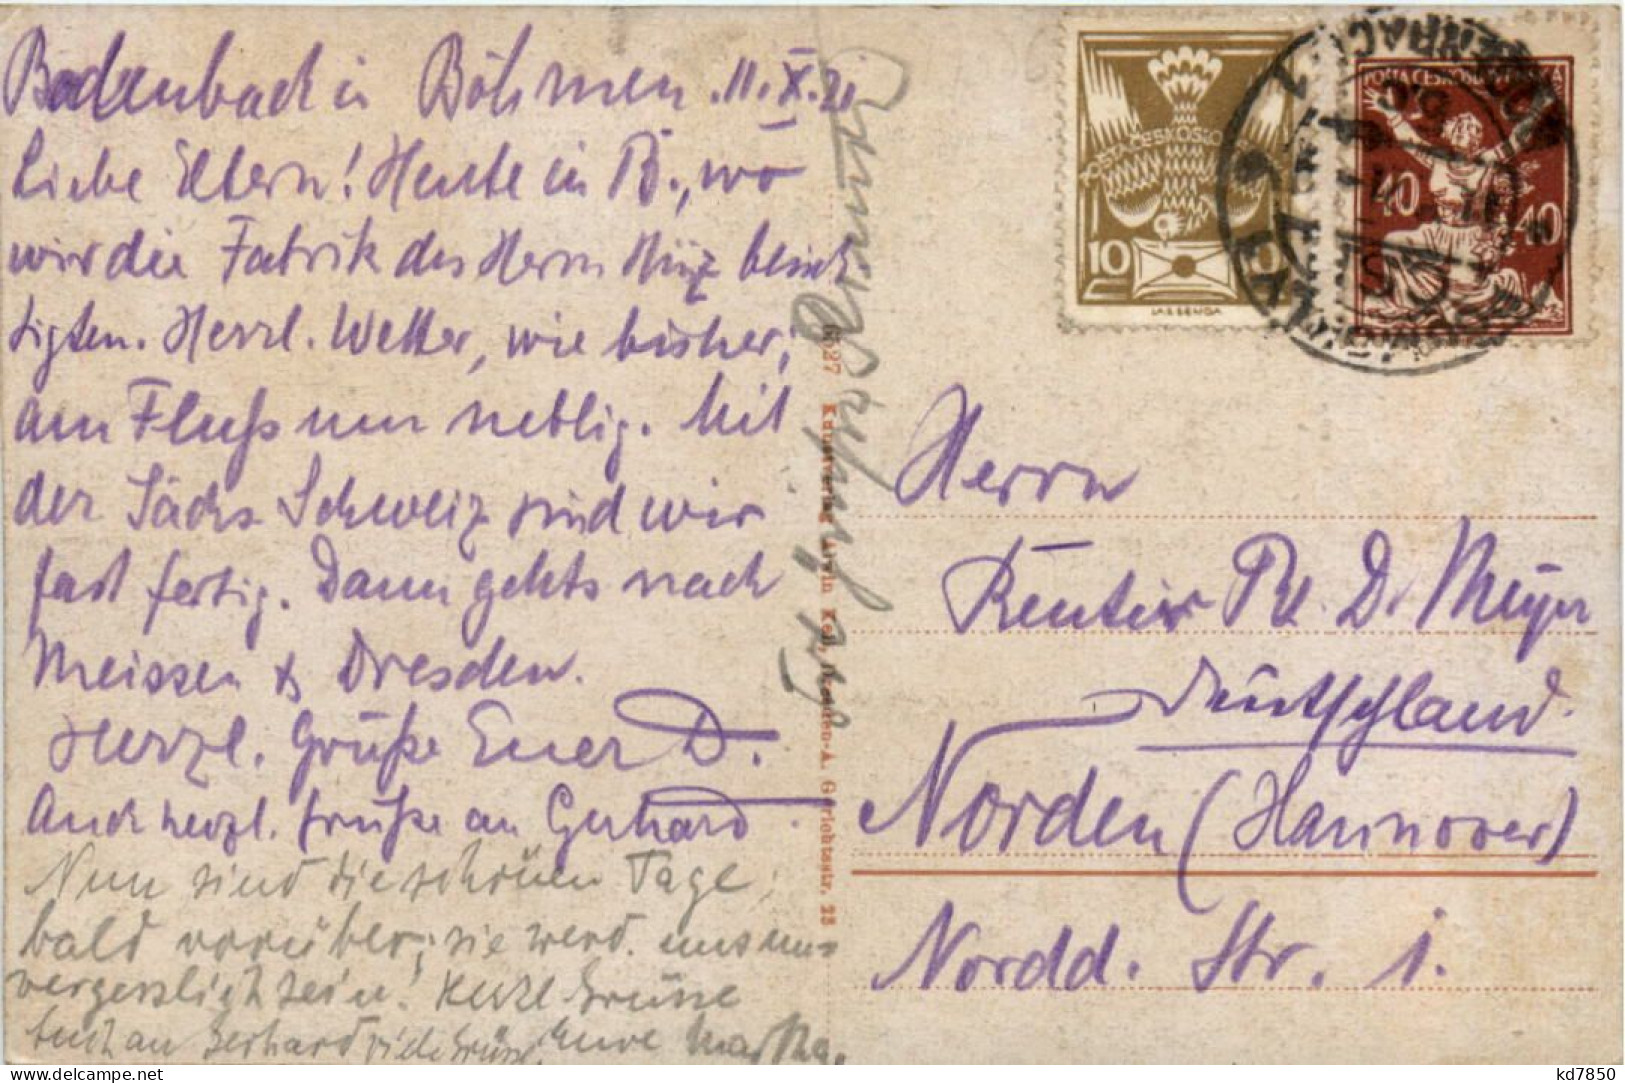 Bodenbach in Böhmen. 11.X.21
Liebe Eltern! Heute in B., wo
wir die Fabrik des Herrn besich-
tigten. Herrl. Wetter, wie bisher;
am Fluß nur neblig. Mit
der Sächs. Schweiz sind wir
fast fertig. Dann gehts nach
Meissen & Dresden.
Herzl. Grüße Euer D.
Auch herzl. Grüße an Gerhard.
Nun sind die schönen Tage
bald vorüber; sie werd. uns un-
vergesslich sein! Herzl Grüsse
Auch an Gerhard viele Grüsse, Eure Martha.
6627 Kunstverlag Arwin Keil, Dresden-A. Gerichtsstr. 23
POSTA ČESKOSLO
10
10
POŠTA ČESKOSLOVENSKÁ
40
40
Herrn
Rentier Dr. Meyer
Deutschland.
Norden (Hannover)
Nordd. Str. 1.
kd7850